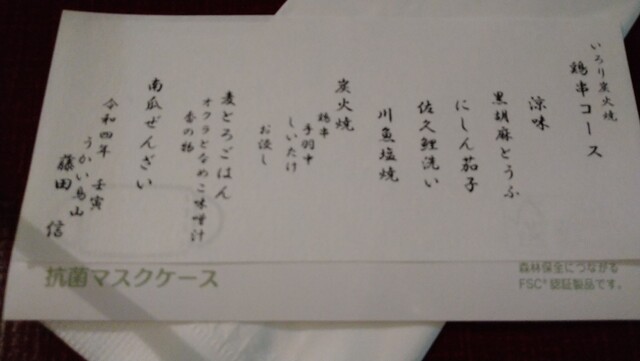 いろり炭火焼
鶏串コース
涼味
黒胡麻とうふ
にしん茄子
佐久鯉洗い
川魚塩焼
炭火焼
鶏串
手羽中
しいたけ
お浸し
麦とろごはん
オクラとなめこ味噌汁
香の物
南瓜ぜんざい
令和四年 壬寅
うかい鳥山
藤田 信
抗菌マスクケース
森林保全につながる
FSC®認証製品です。